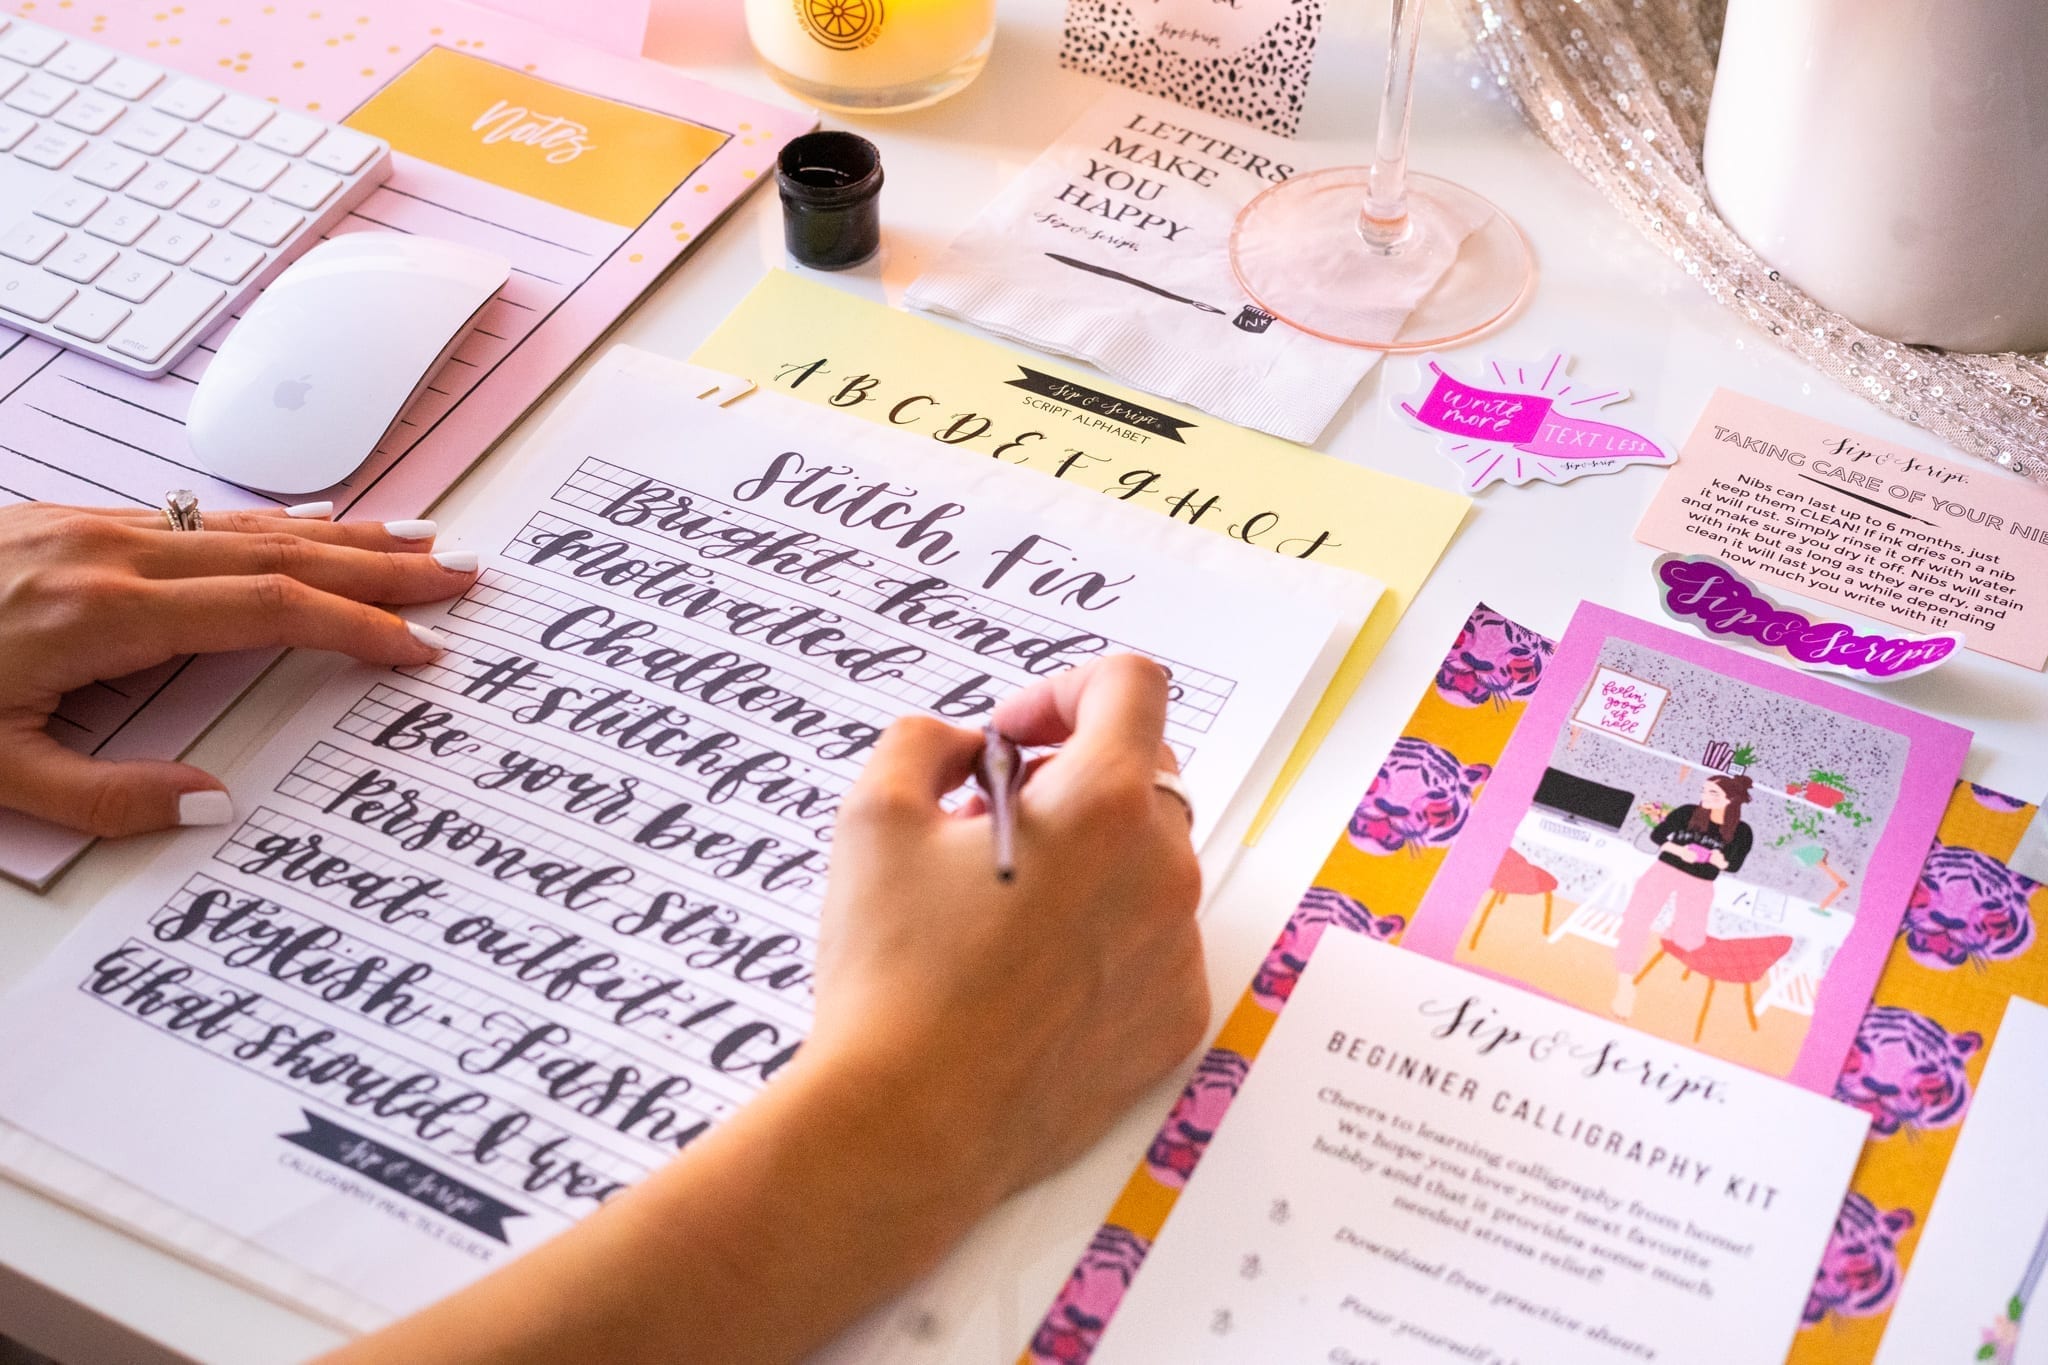 Notes
KEAP
Sip & Script.
LETTERS
MAKE
YOU
HAPPY
Sip & Script.
INK
enter
Sip & Script.
SCRIPT ALPHABET
A B C D E F G H I J
write
more
TEXT LESS
Sip & Script
Sip & Script.
TAKING CARE OF YOUR
Nibs can last up to 6 months, just
keep them CLEAN! If ink dries on a nib
it will rust. Simply rinse it off with water
and make sure you dry it off. Nibs will stain
with ink but as long as they are dry, and
clean it will last you a while depending
how much you write with it!
Sip & Script.
Stitch Fix
Bright, Kind,
Motivated
Challeng
#stitchfix
Be your best
Personal Styli
great outfit!
Stylish. Fashi
What should I
Sip & Script
CALLIGRAPHY PRACTICE GUIDE
feelin'
good
as
hell
Sip & Script.
BEGINNER CALLIGRAPHY KIT
Cheers to learning calligraphy from home!
We hope you love your next favorite
hobby and that it provides some much
needed stress relief!
Download free practice sheets
Pour yourself